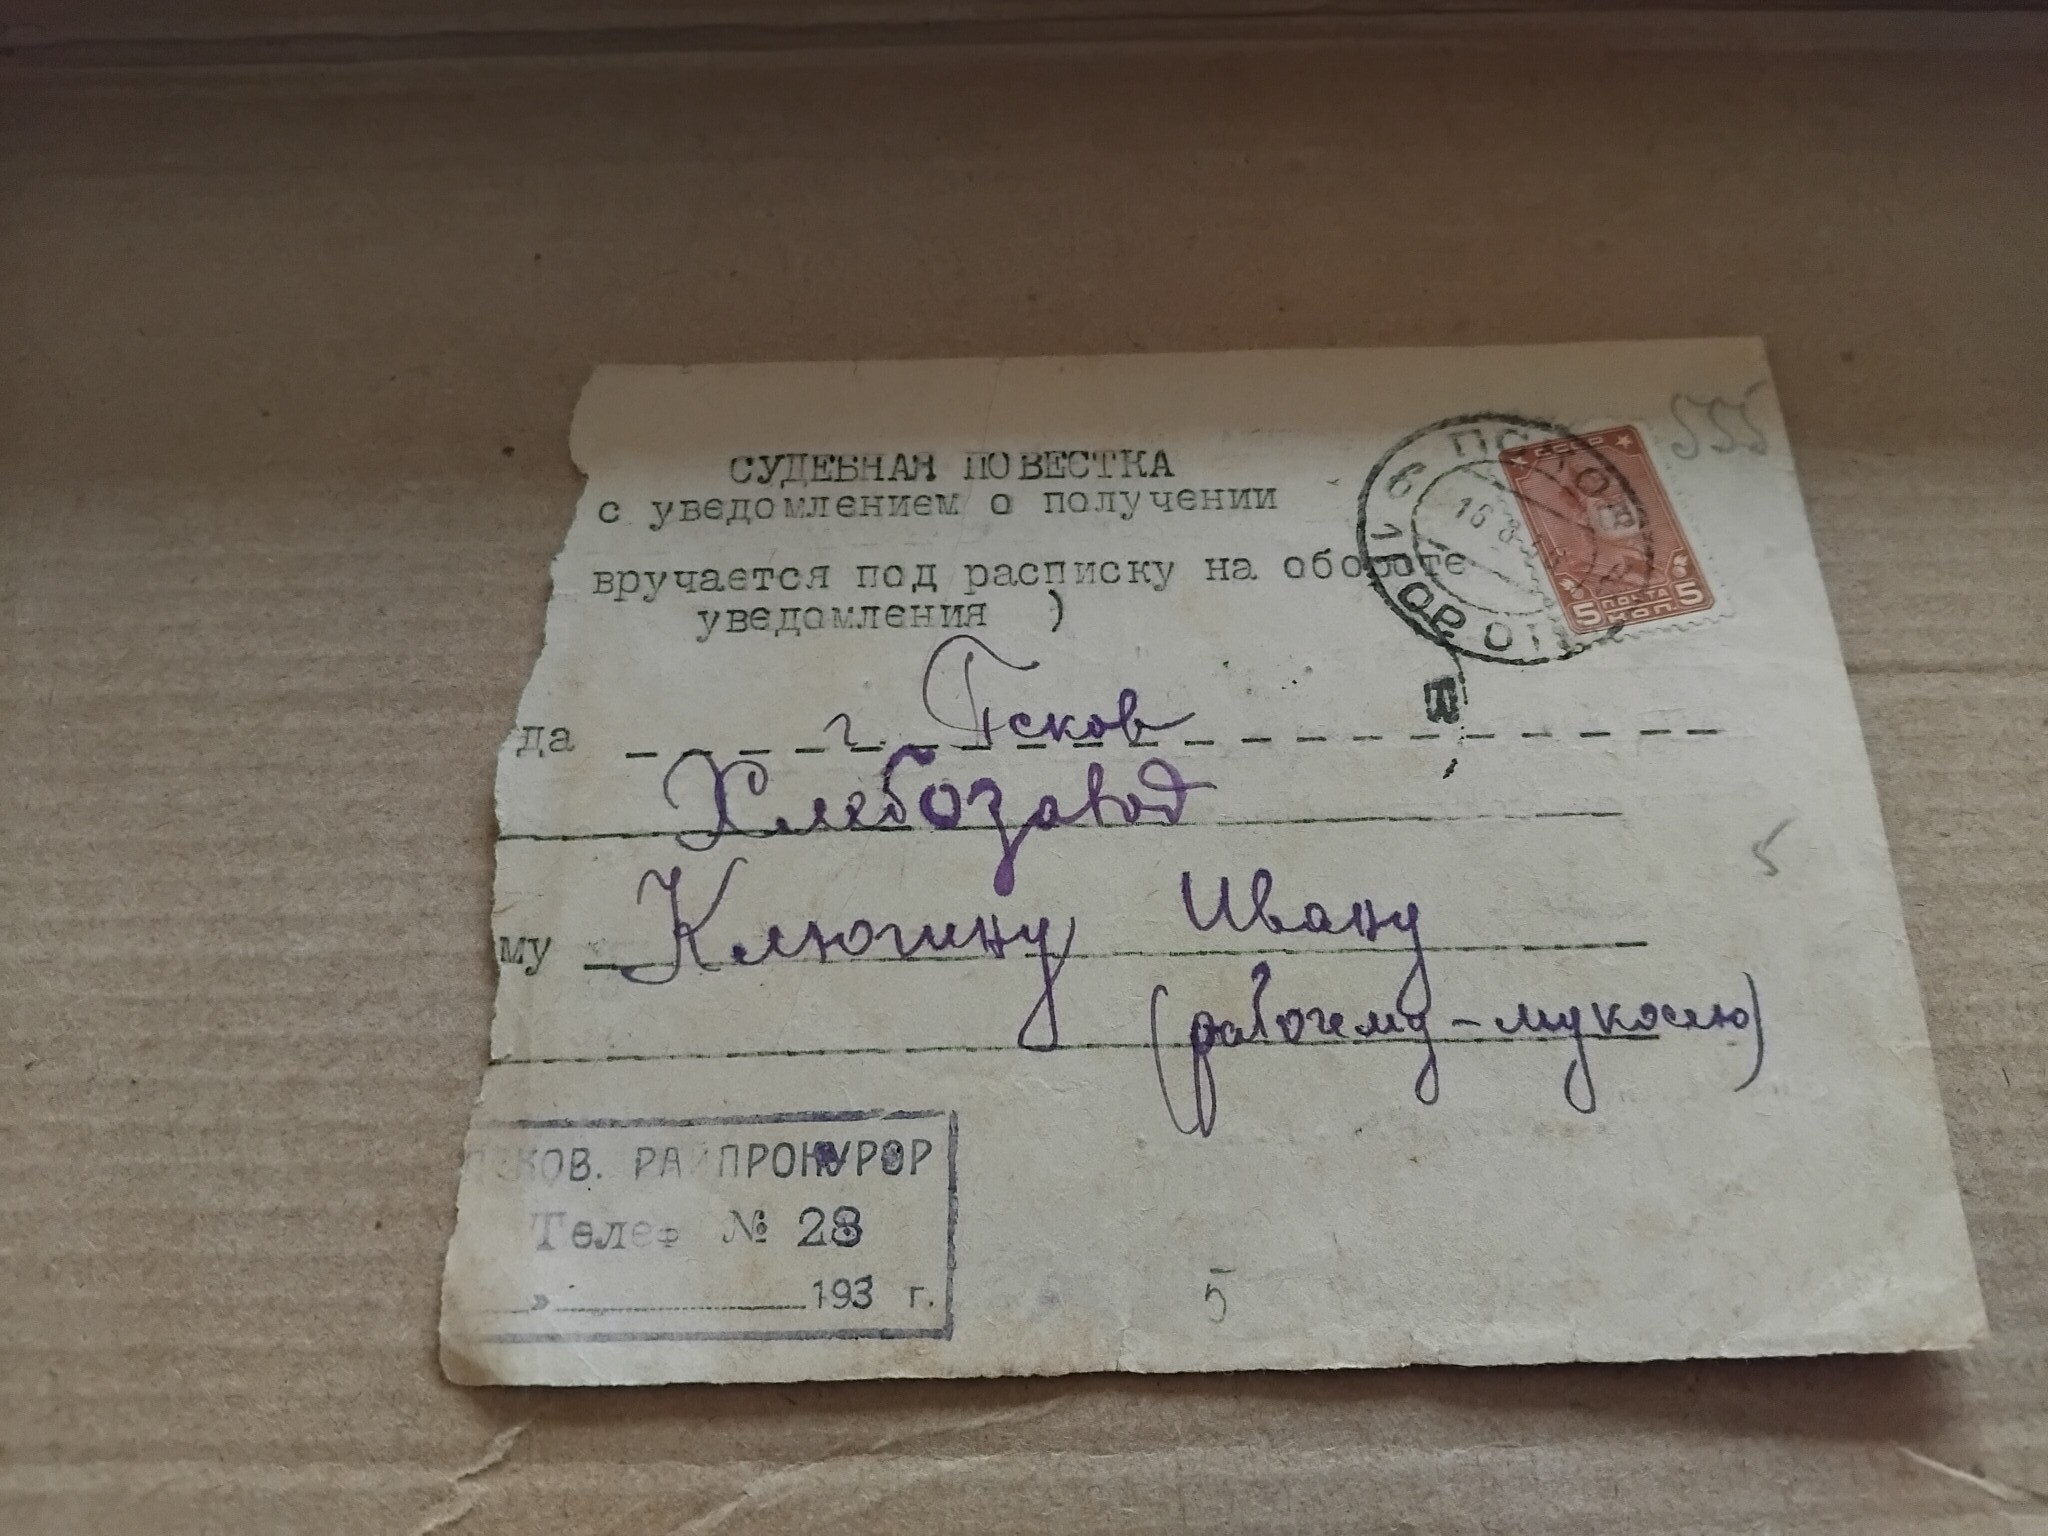 СУДЕБНАЯ ПОВЕСТКА
с уведомлением о получении
вручается под расписку на обороте
уведомления )
СССР
5 ПОЧТА 5
КОП.
ПСКОВ
6 16 8
1 ГОР ОТ
555
да г. Псков
Хлебозавод
5
му Клюгину Ивану
(рабочему-мукосею)
ПСКОВ. РАЙПРОКУРОР
Телеф № 28
» 193 г.
5